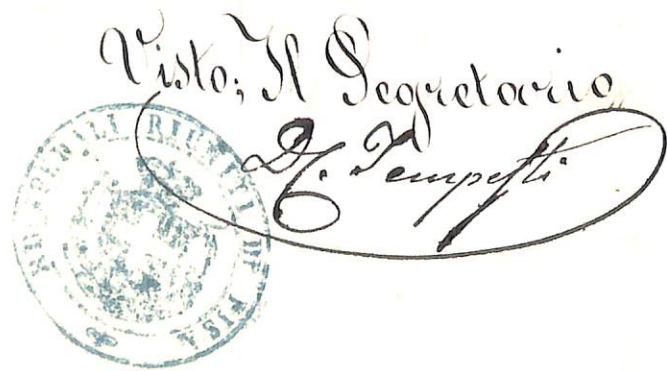 Visto; Il Segretario
D. Tempesti
RR. SPEDALI RIUNITI DI PISA